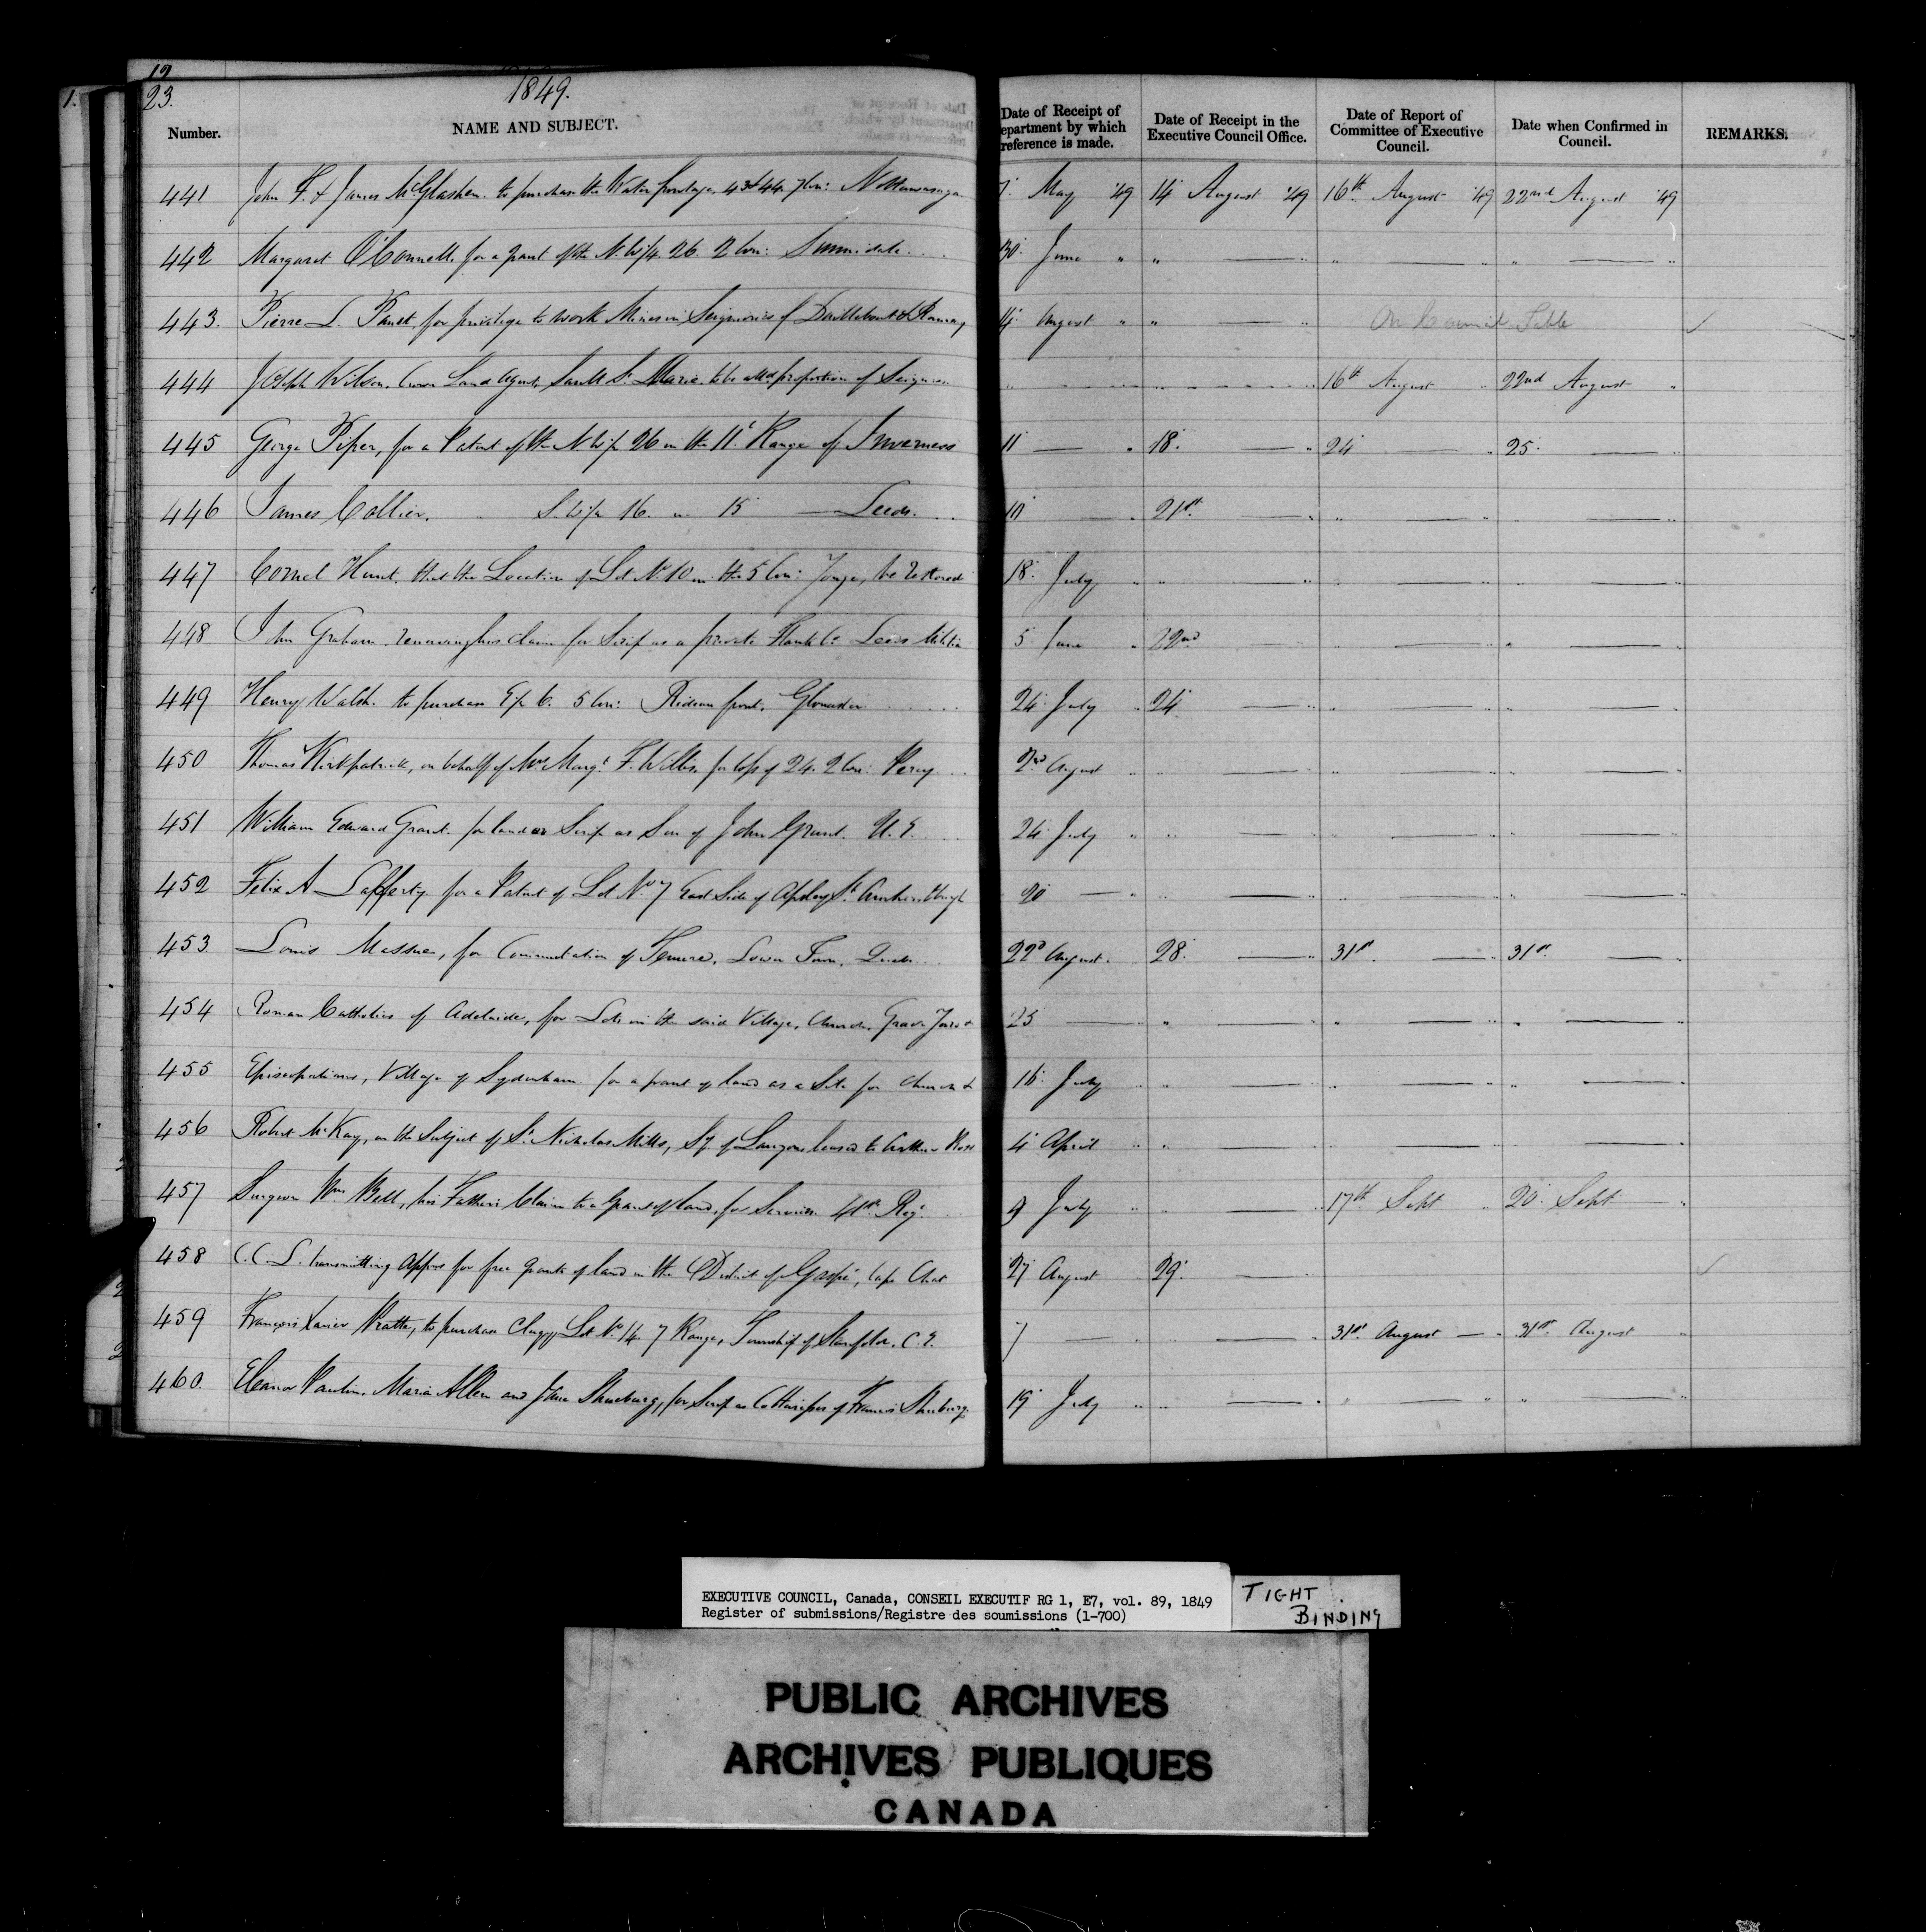 12
1.
23.
1849.
Number.
NAME AND SUBJECT.
Date of Receipt of
epartment by which
reference is made.
Date of Receipt in the
Executive Council Office.
Date of Report of
Committee of Executive
Council.
Date when Confirmed in
Council.
REMARKS.
441 John F. & James McGlashen. to purchase the Water frontage 43 & 44. 7 Con: Nottawasaga 7 May '49 14 August '49 16th August '49 22nd August '49
442 Margaret O'Connell, for a grant of the N. W/4. 26. 2 Con: Sunnidale 30 June " " — " " — " " — "
443. Pierre L. Panet, for privilege to work Mines in Seigniories of Daillebout & Ramsay 14 August " " — " On Council Table
444 Joseph Wilson. Crown Land Agent, Sault St. Marie. to be allowed proportion of " " " 16th August " 22nd August "
445 George Piper, for a Patent of the N W/2 26 in the 11t Range of Inverness 11 — " 18. — " 24 — " 25. — "
446 James Collier. S. W/2 16. " 15 — Leeds. 10 — " 21st — " " — " " — "
447 Cornel Hunt. that the Location of Lot No 10 in the 5 Con: Yonge, be restored 18. July " " — " " — " " — "
448 John Graham. renewing his claim for Scrip as a private Flank Co. Leeds Militia 5 June " 22nd — " " — " " — "
449 Henry Walsh. to purchase E/2 6. 5 Con: Rideau front. Gloucester 24 July " 24 — " " — " " — "
450 Thomas Kirkpatrick, on behalf of Mrs Margt F. Willis, for of 24. 2 Con: Percy 2nd August " " — " " — " " — "
451 William Edward Grant. for land or Scrip as Son of John Grant. U. E. 24 July " " — " " — " " — "
452 Felix A Lafferty for a Patent of Lot No 7 East Side of Apsley St. Amherstburgh 20 — " " — " " — " " — "
453 Louis Massue, for Commutation of Tenure, Lower Town, Quebec 22d August. 28. — " 31st. — " 31st. — "
454 Roman Catholics of Adelaide, for Lots in the said Village, Church, Grave Yard & 25 — " " — " " — " " — "
455 Episcopalians, Village of Sydenham for a grant of land as a Site for Church & 16 July " " — " " — " " — "
456 Robert McKay, on the Subject of St. Nicholas Mills, Sy. of Lauzon leased to Arthur Ross 4 April " " — " " — " " — "
457 Surgeon Wm Bell, his Father's Claim to a Grant of land, for Services 41st Regt. 9 July " " — " 17th Sept " 20 Sept — "
458 C. C. L. transmitting for free grants of land in the District of Gaspé, Cape Chat 27 August " 29. —
459 François Xavier Pratte, to purchase Clergy Lot No 14. 7 Range, Township of Stanfold. C. E. 7 — " — " 31st August — " 31st August "
460. Eleanor Paulin, Maria Allen and Jane Shuburg, for Scrip as CoHeiresses of Francis Shuburg. 19 July " " — " " — " " — "
EXECUTIVE COUNCIL, Canada, CONSEIL EXECUTIF RG 1, E7, vol. 89, 1849
Register of submissions/Registre des soumissions (1-700)
TIGHT
BINDING
PUBLIC ARCHIVES
ARCHIVES PUBLIQUES
CANADA